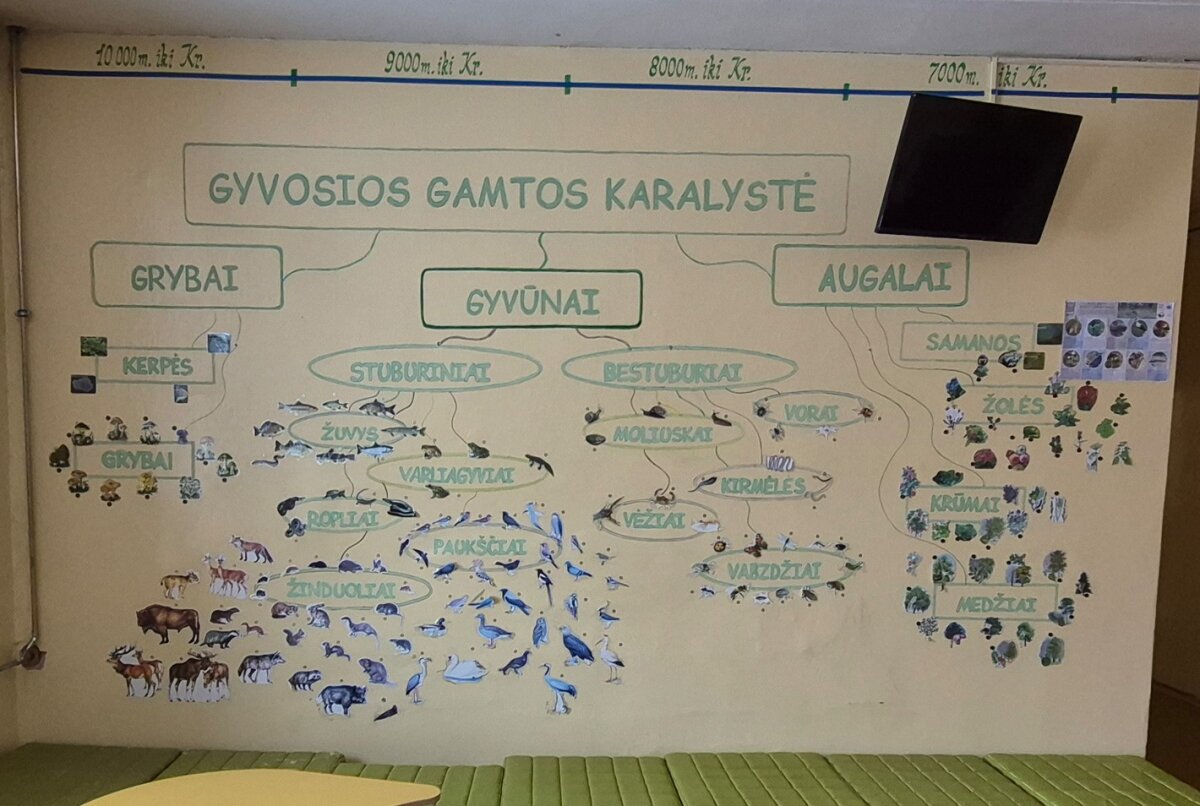 10 000m. iki Kr.
9000m. iki Kr.
8000m. iki Kr.
7000m. iki Kr.
GYVOSIOS GAMTOS KARALYSTĖ
GRYBAI
GYVŪNAI
AUGALAI
KERPĖS
GRYBAI
STUBURINIAI
ŽUVYS
VARLIAGYVIAI
ROPLIAI
PAUKŠČIAI
ŽINDUOLIAI
BESTUBURIAI
MOLIUSKAI
VORAI
KIRMĖLĖS
VĖŽIAI
VABZDŽIAI
SAMANOS
ŽOLĖS
KRŪMAI
MEDŽIAI